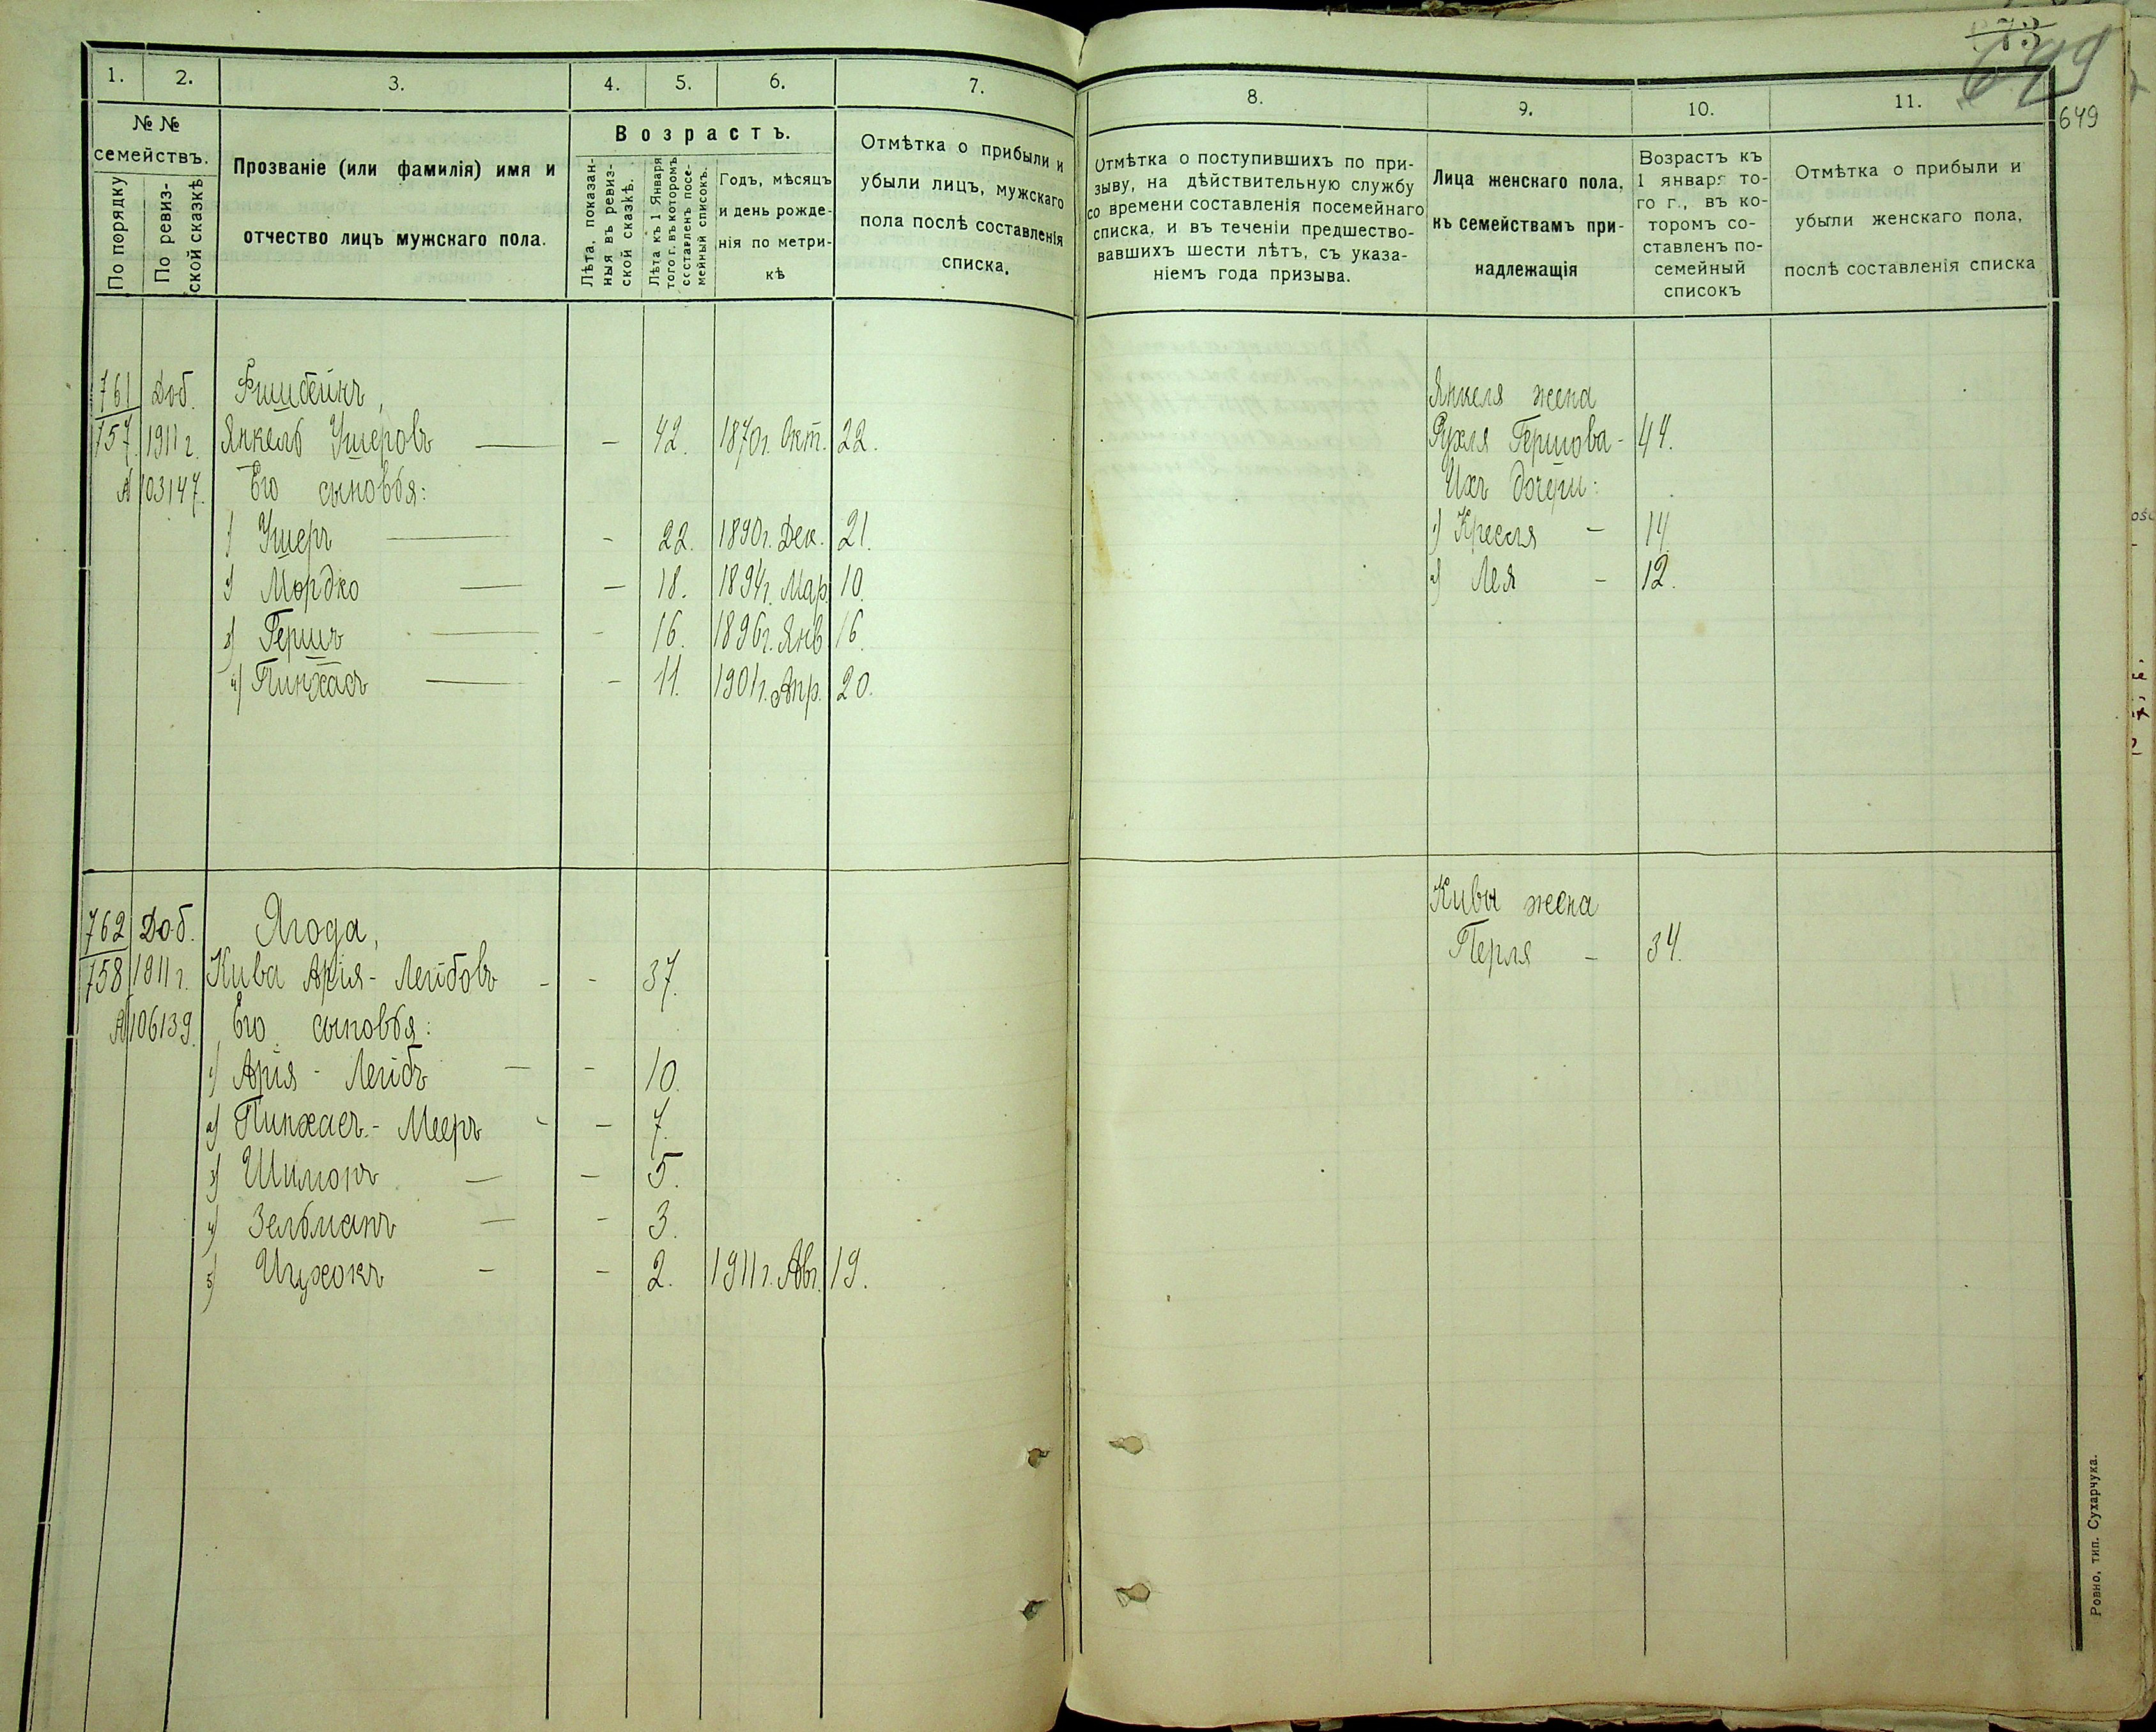 649
649
1.
2.
3.
4.
5.
6.
7.
8.
9.
10.
11.
№ №
семействъ.
По порядку
По ревиз-
ской сказкѣ
Прозваніе (или фамилія) имя и
отчество лицъ мужскаго пола.
Возрастъ.
Лѣта, показан-
ныя въ ревиз-
ской сказкѣ.
Лѣта къ 1 Января
того г. въ которомъ
составленъ посе-
мейный списокъ.
Годъ, мѣсяцъ
и день рожде-
нія по метри-
кѣ
Отмѣтка о прибыли и
убыли лицъ, мужскаго
пола послѣ составленія
списка.
Отмѣтка о поступившихъ по при-
зыву, на дѣйствительную службу
со времени составленія посемейнаго
списка, и въ теченіи предшество-
вавшихъ шести лѣтъ, съ указа-
ніемъ года призыва.
Лица женскаго пола,
къ семействамъ при-
надлежащія
Возрастъ къ
1 января то-
го г., въ ко-
торомъ со-
ставленъ по-
семейный
списокъ
Отмѣтка о прибыли и
убыли женскаго пола,
послѣ составленія списка
761 Доб. Фишбейнъ, Янкеля жена
757. 1911 г. Янкель Ушеровъ — – 42. 1870 г. Окт. 22. Рухля Гершова - 44.
№ 103147. Его сыновья: Ихъ дочери:
1) Ушеръ — - 22. 1890 г. Дек. 21. 1) Кресля – 14
2) Мордко — – 18. 1894 г. Мар. 10. 2) Лея – 12.
3) Гершъ — - 16. 1896 г. Янв. 16.
4) Пинхасъ — - 11. 1901 г. Апр. 20.
762 Доб. Ягода, Кивы жена
758 1911 г. Кива Арія-Лейбовъ - - 37. Перля – 34.
№ 106139. Его сыновья:
1) Арія-Лейбъ — - 10.
2) Пинхасъ-Мееръ - – 7.
3) Шимонъ — – 5.
4) Зельманъ — - 3.
5) Ицхокъ – – 2. 1911 г. Авг. 19.
Ровно, тип. Сухарчука.